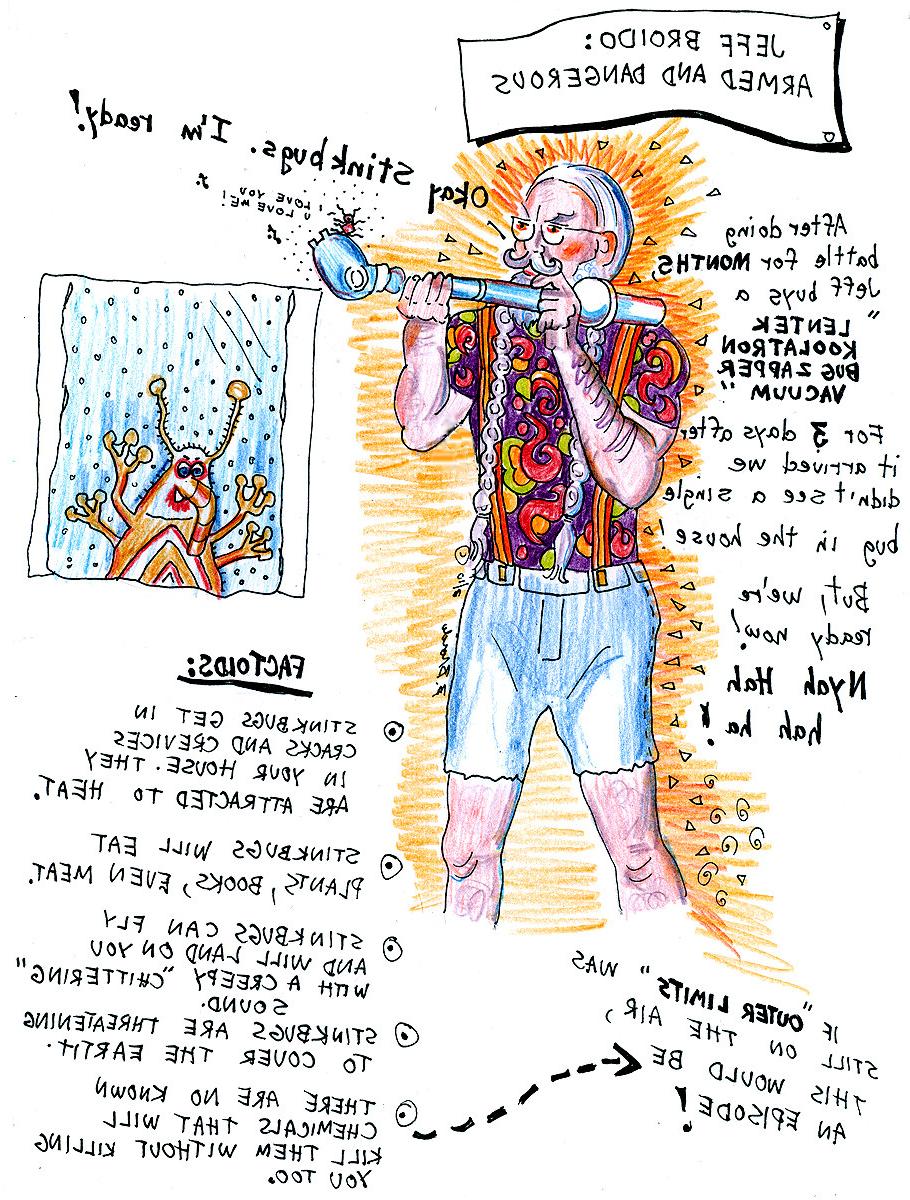 JEFF BROIDO:
ARMED AND DANGEROUS
Okay stinkbugs. I'm ready!
I LOVE YOU
U LOVE ME!
After doing
battle for MONTHS,
Jeff buys a
"LENTEK
KOOLATRON
BUG ZAPPER
VACUUM"
For 3 days after
it arrived we
didn't see a single
bug in the house!
But, we're
ready now!
Nyah Hah
hah ha!
FACTOIDS:
STINKBUGS GET IN
CRACKS AND CREVICES
IN YOUR HOUSE. THEY
ARE ATTRACTED TO HEAT.
STINKBUGS WILL EAT
PLANTS, BOOKS, EVEN MEAT.
STINKBUGS CAN FLY
AND WILL LAND ON YOU
WITH A CREEPY "CHITTERING"
SOUND.
STINKBUGS ARE THREATENING
TO COVER THE EARTH.
THERE ARE NO KNOWN
CHEMICALS THAT WILL
KILL THEM WITHOUT KILLING
YOU TOO.
IF "OUTER LIMITS" WAS
STILL ON THE AIR,
THIS WOULD BE
AN EPISODE!